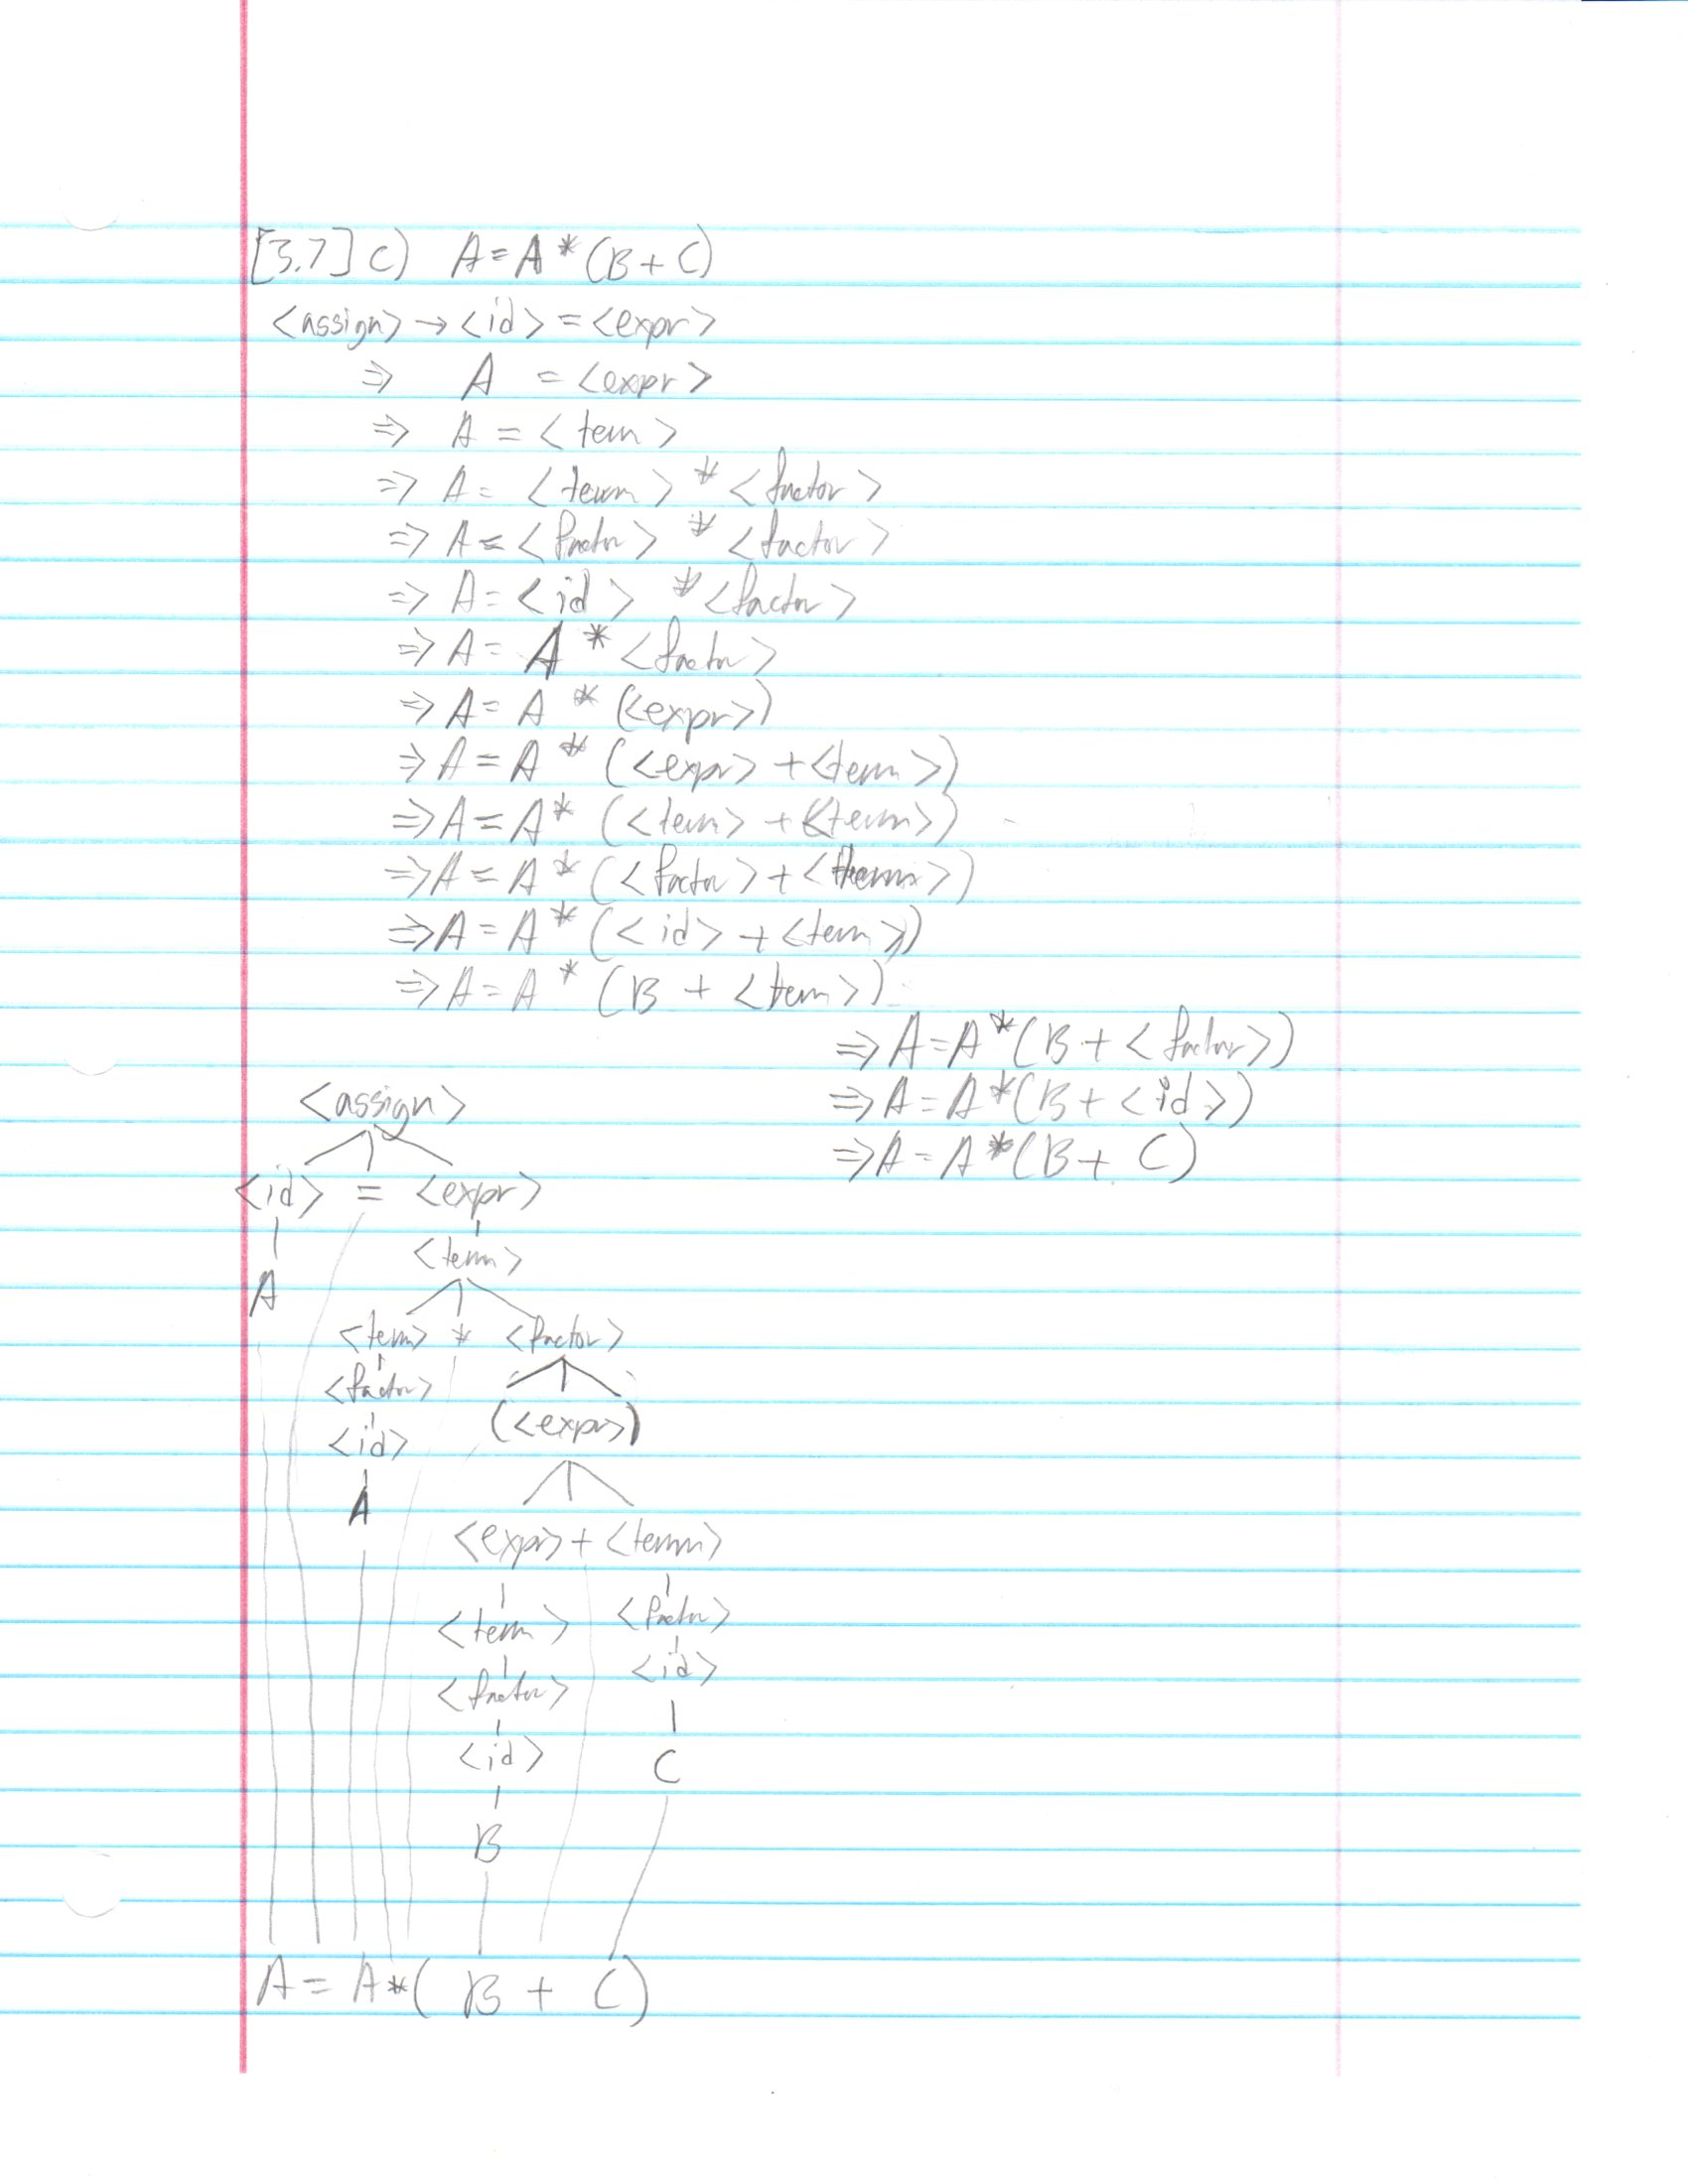 [3.7] c) A = A * (B + C)
<assign> → <id> = <expr>
⇒ A = <expr>
⇒ A = <term>
⇒ A = <term> * <factor>
⇒ A = <factor> * <factor>
⇒ A = <id> * <factor>
⇒ A = A * <factor>
⇒ A = A * (<expr>)
⇒ A = A * (<expr> + <term>)
⇒ A = A * (<term> + <term>)
⇒ A = A * (<factor> + <term>)
⇒ A = A * (<id> + <term>)
⇒ A = A * (B + <term>)
⇒ A = A * (B + <factor>)
⇒ A = A * (B + <id>)
⇒ A = A * (B + C)
<assign>
<id> = <expr>
<term>
A
<term> * <factor>
<factor>
(<expr>)
<id>
A
<expr> + <term>
<term> <factor>
<factor> <id>
<id> C
B
A = A * ( B + C )